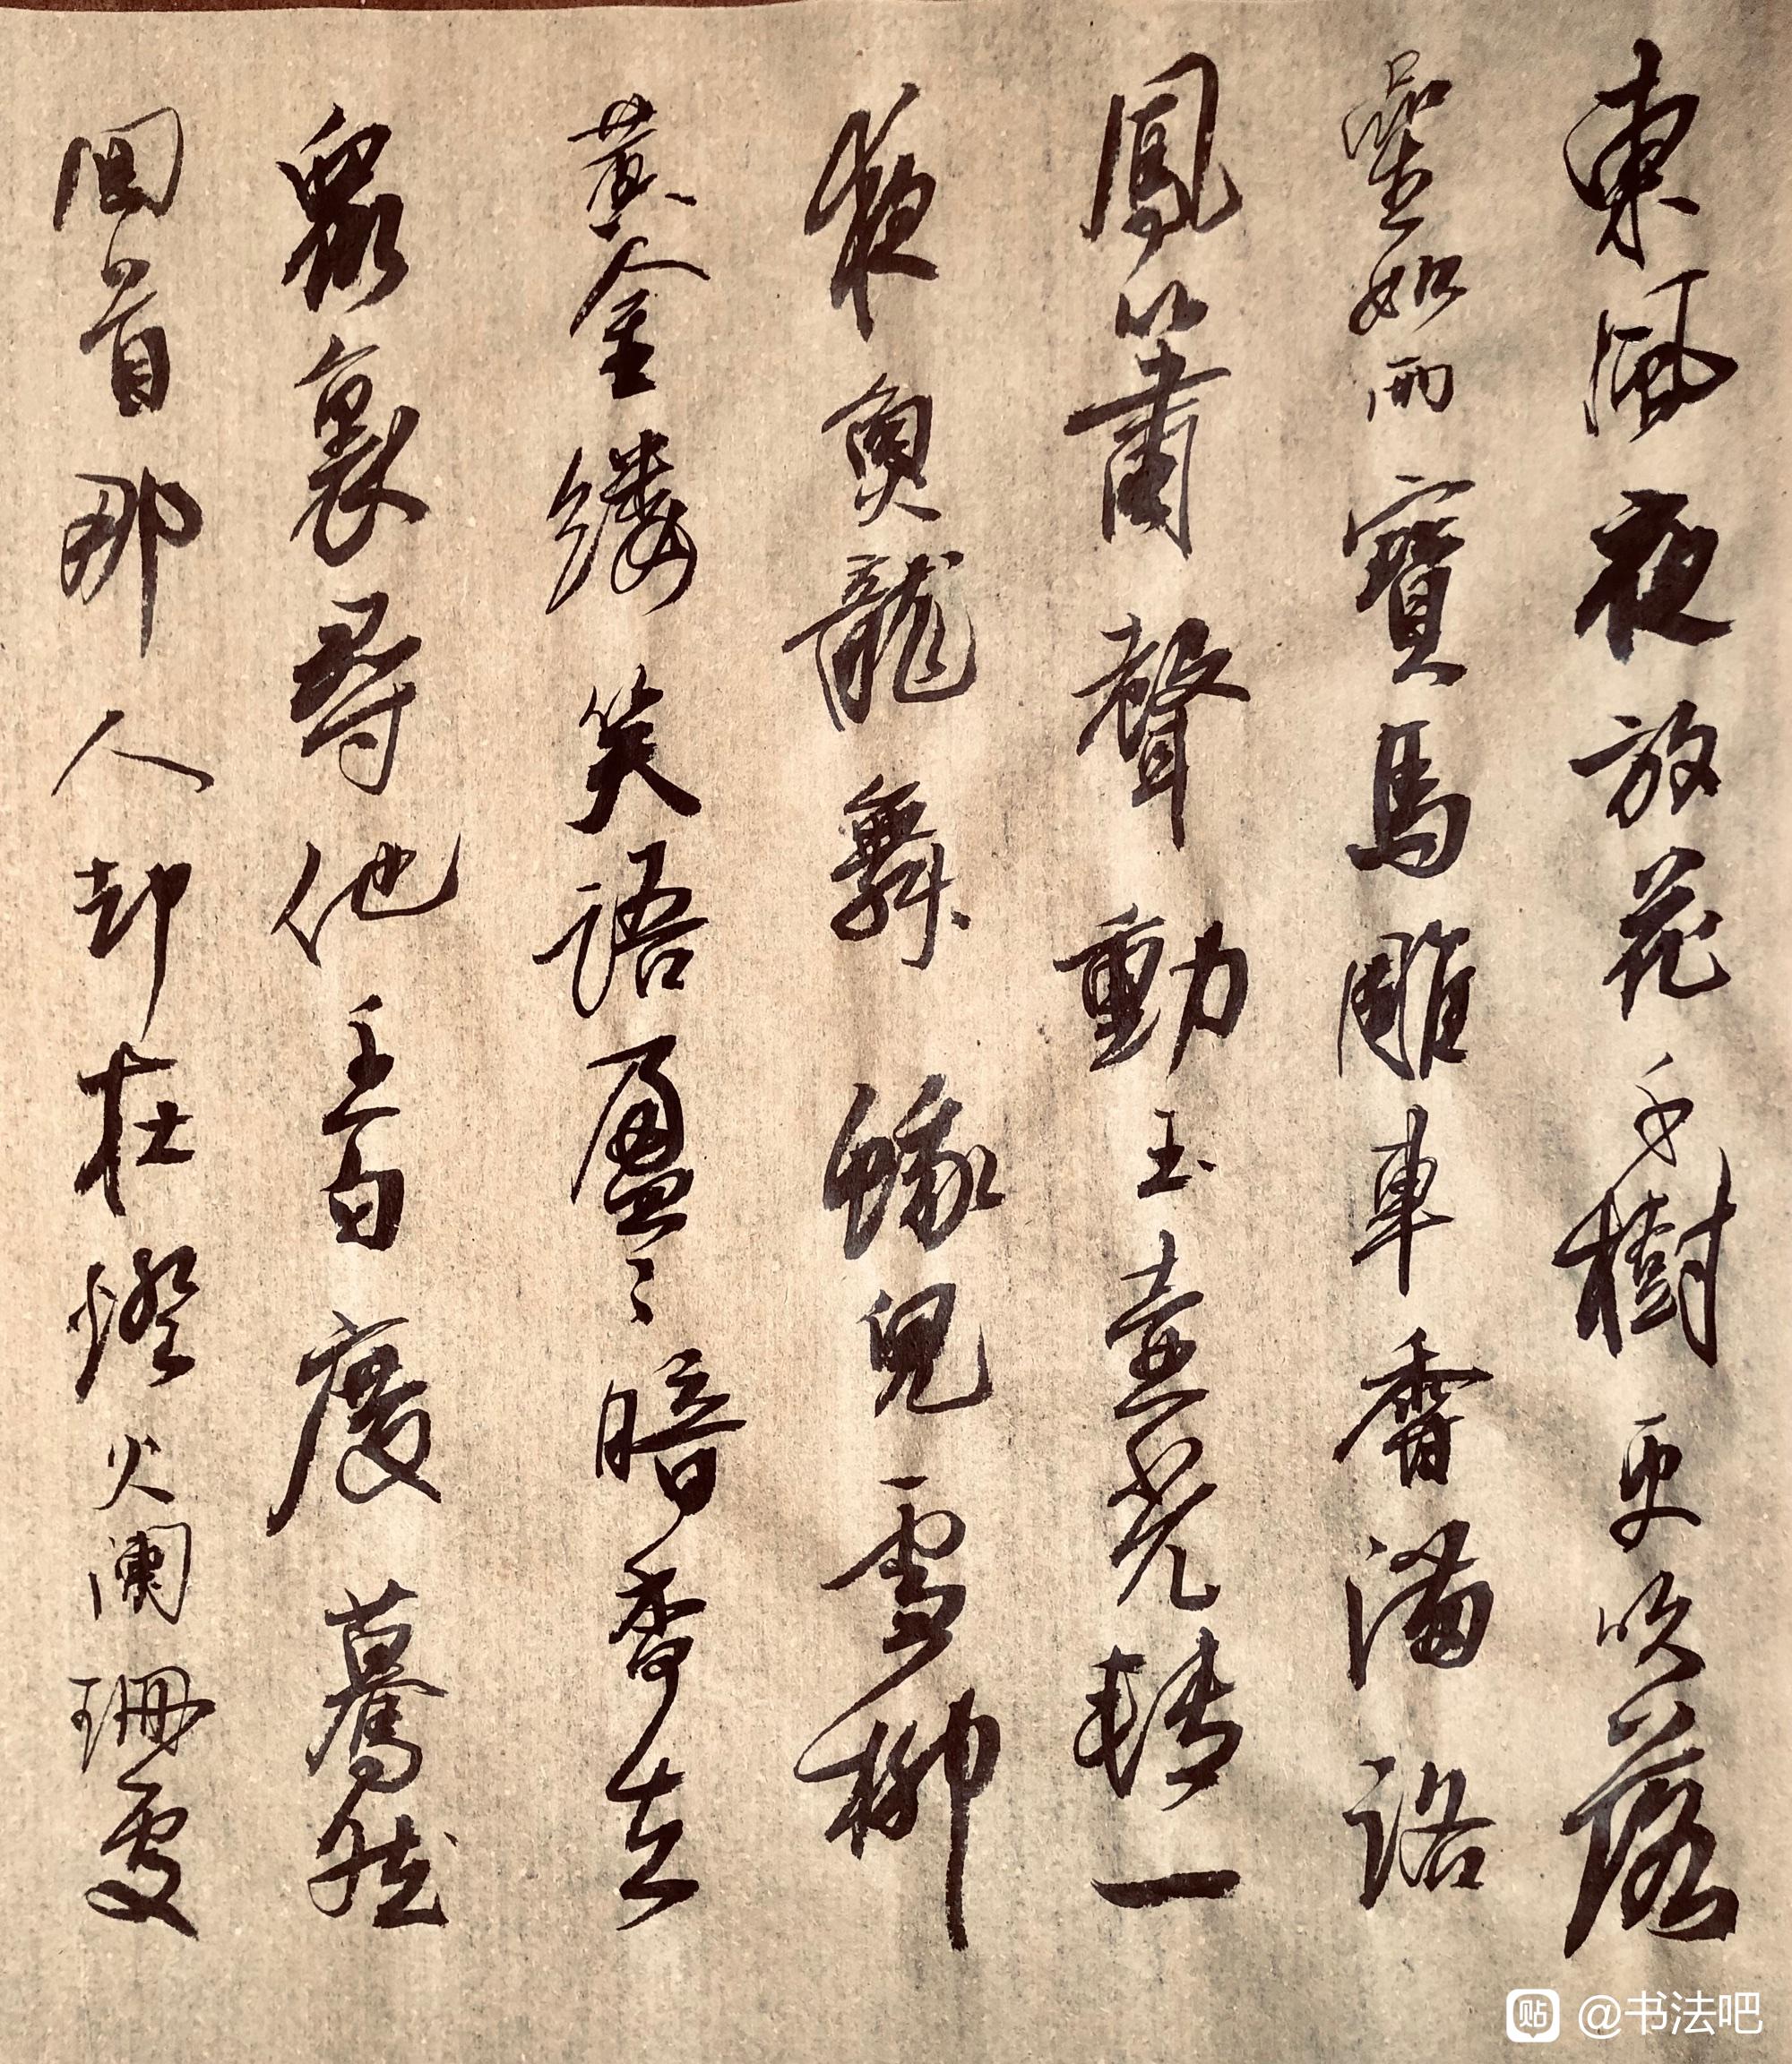 東風夜放花千樹更吹落
星如雨寶馬雕車香滿路
鳳簫聲動玉壺光轉一
夜魚龍舞蛾兒雪柳
黄金縷笑語盈〻暗香去
眾裏尋他千百度驀然
回首那人却在燈火闌珊處
貼 @书法吧